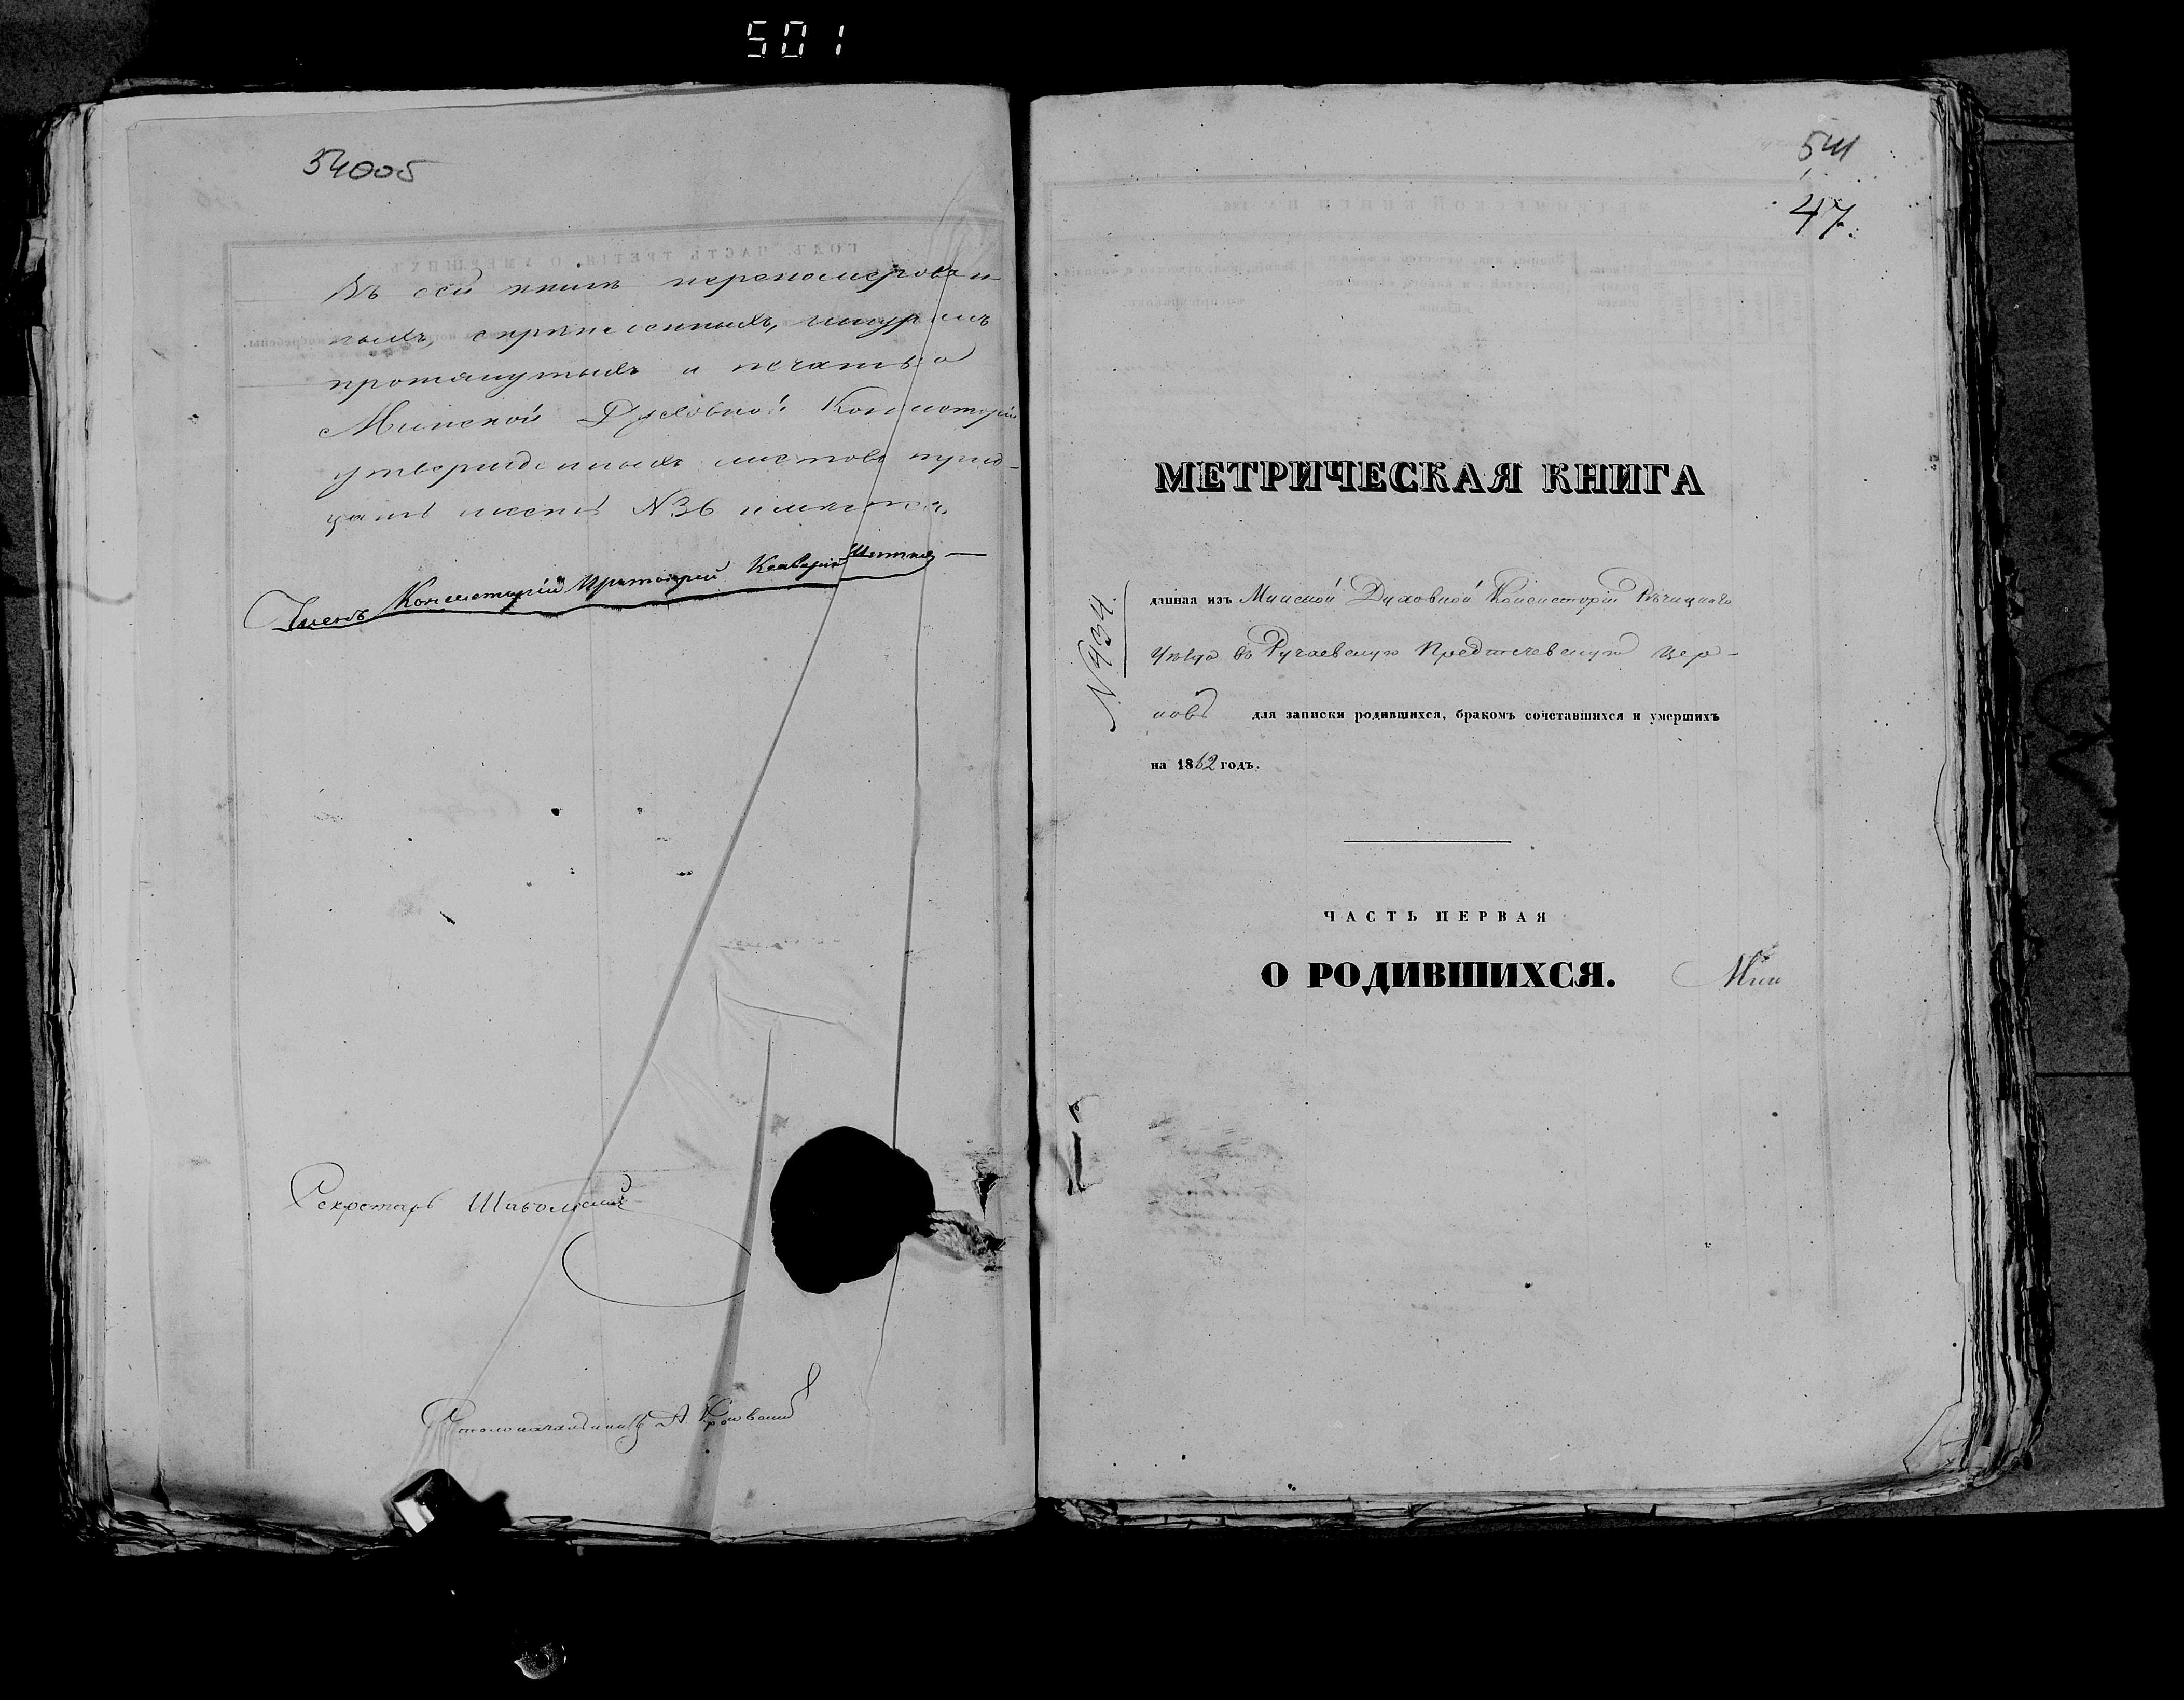 501
540об
Въ сей книгѣ перенумерован-
ныхъ, скрѣпленныхъ, шнуромъ
протянутыхъ и печатью
Минской Духовной Консисторіи
утвержденныхъ листовъ
шесть №36 имѣется.
Членъ Консисторіи Протоіерей
Секретарь
Столоначальникъ А.
541
47.
МЕТРИЧЕСКАЯ КНИГА
№434.
данная изъ Минской Духовной Консисторіи Рѣчицкаго
Уѣзда въ Ручаевскую Предтечевскую цер-
ковь для записки родившихся, бракомъ сочетавшихся и умершихъ
на 1862 годъ.
ЧАСТЬ ПЕРВАЯ
О РОДИВШИХСЯ.
Мин